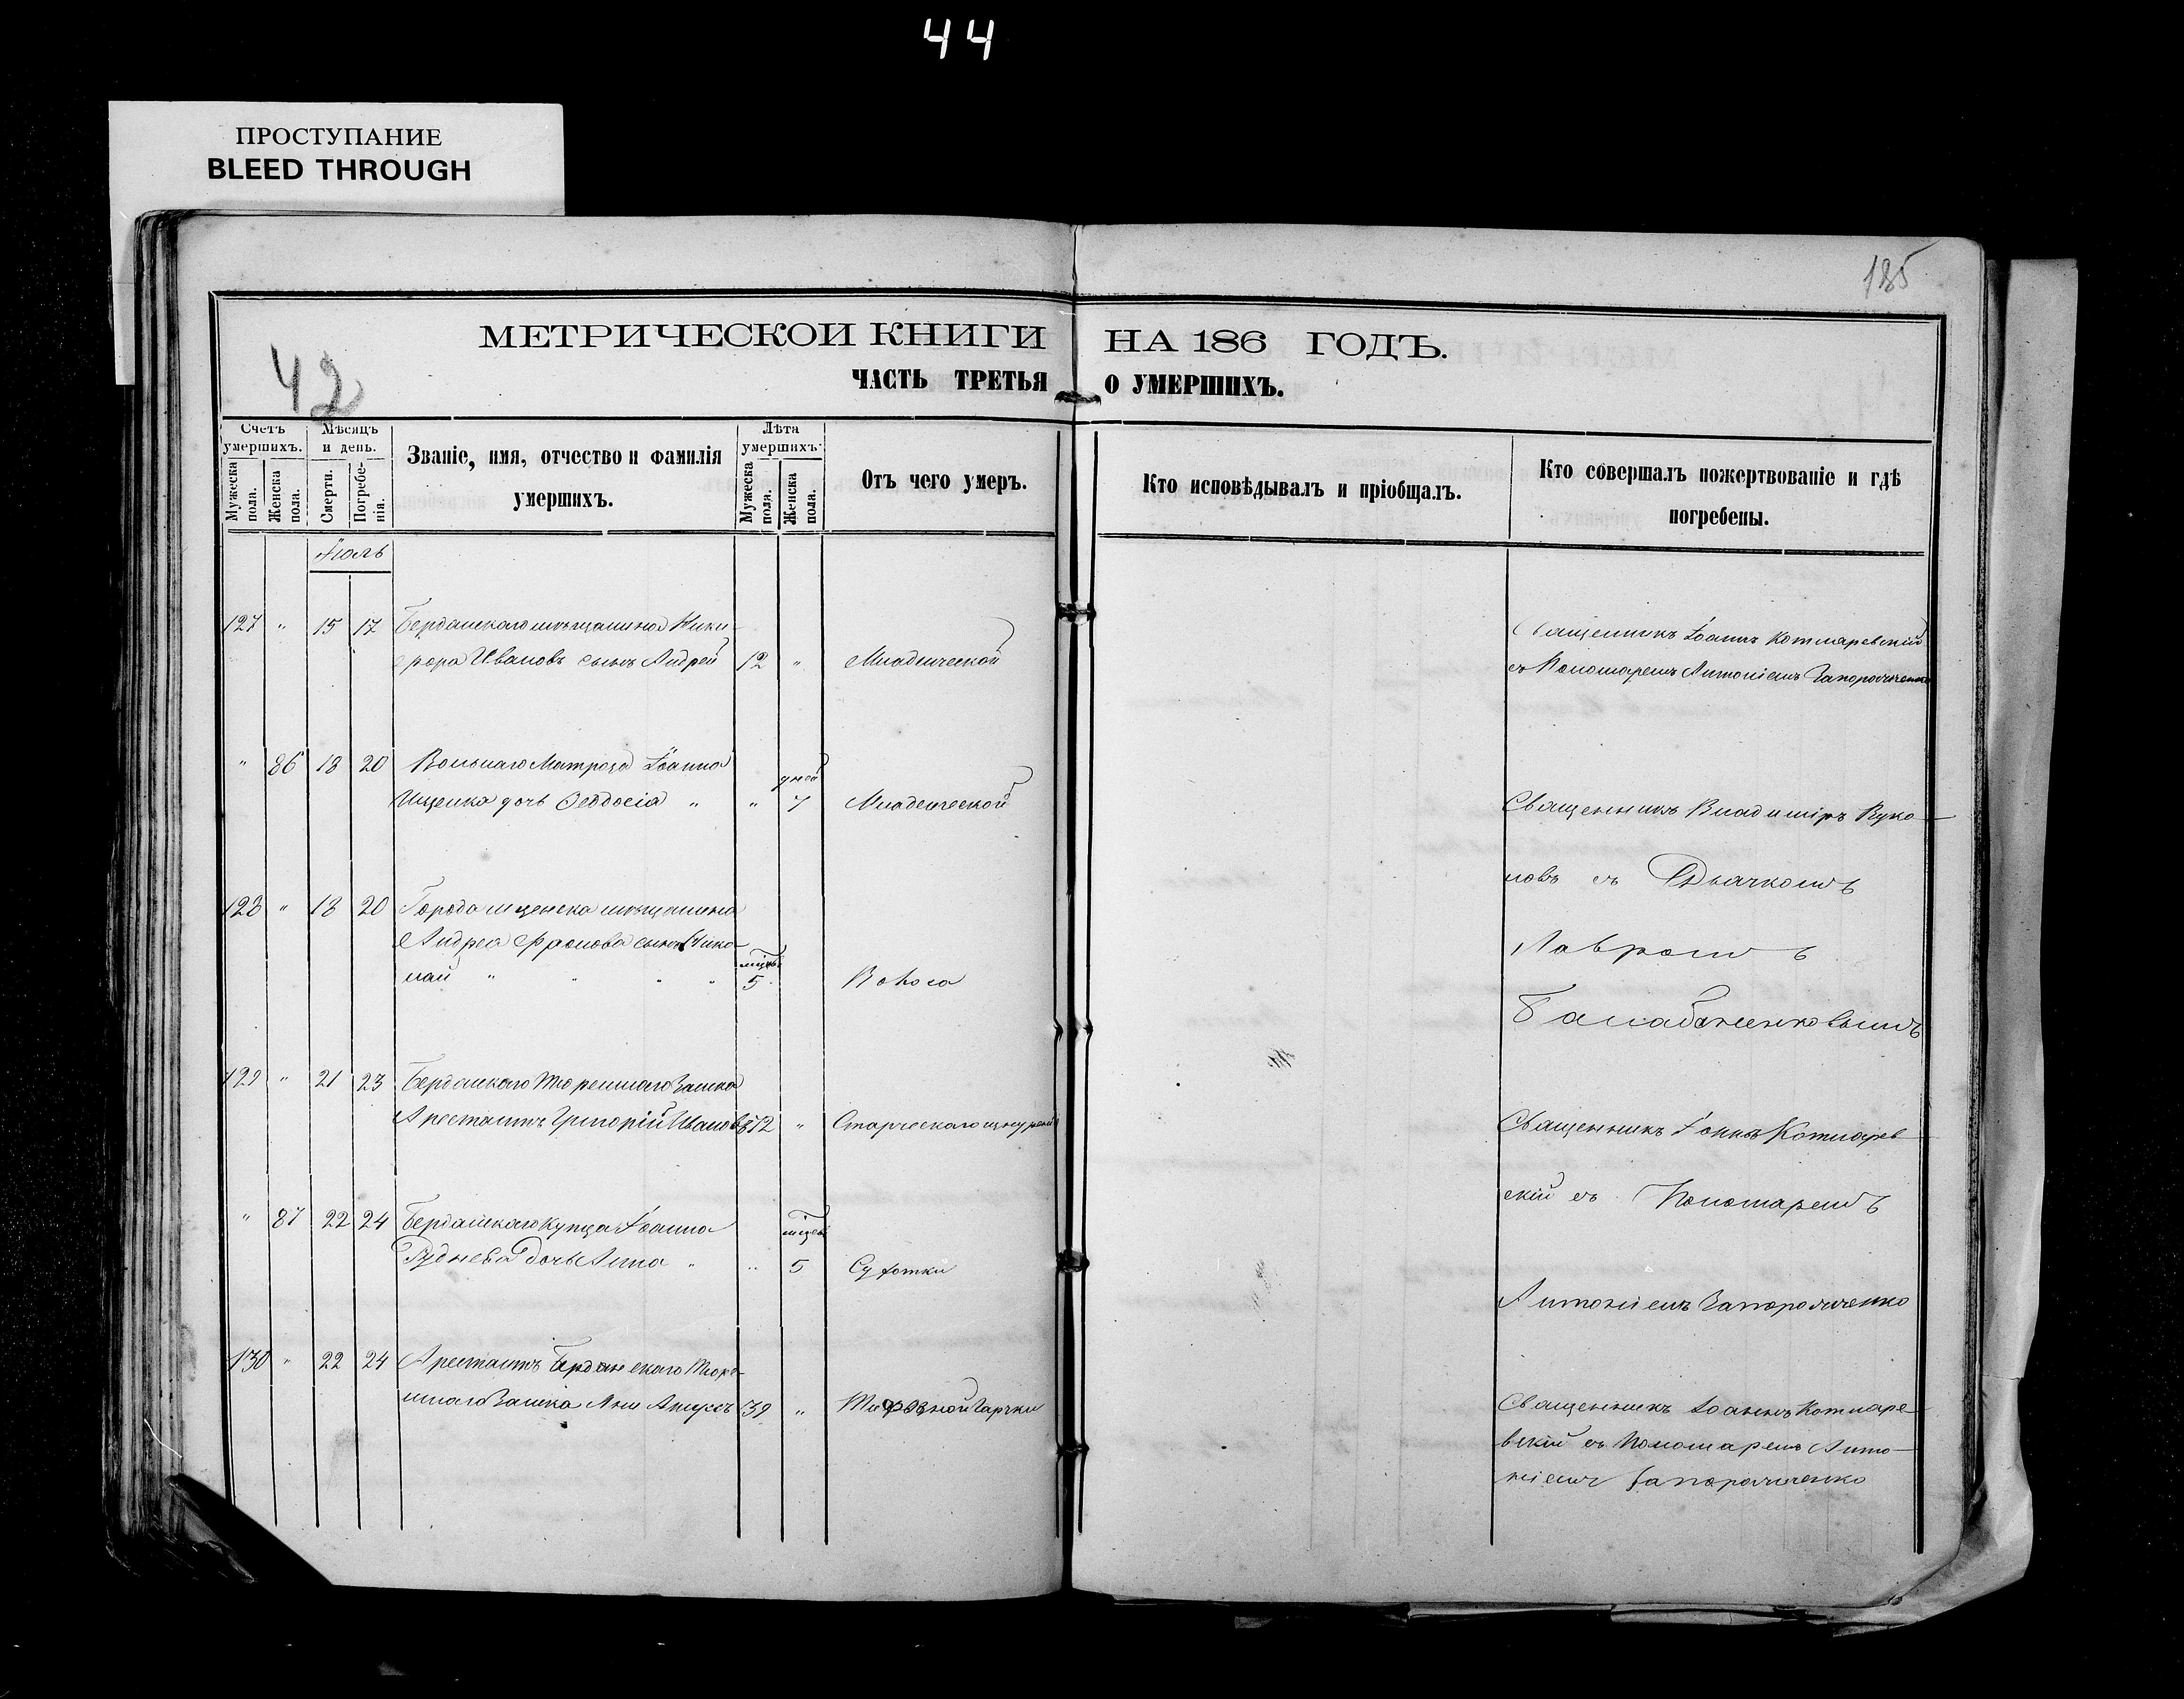 44
ПРОСТУПАНИЕ
BLEED THROUGH
185
42
МЕТРИЧЕСКОЙ КНИГИ НА 186 ГОДЪ.
ЧАСТЬ ТРЕТЬЯ О УМЕРШИХЪ.
Счетъ умершихъ.
Мужеска пола.
Женска пола.
Мѣсяцъ и день.
Смерти.
Погребе-
нія.
Званіе, имя, отчество и фамилія
умершихъ.
Лѣта
умершихъ:
Мужеска пола.
Женска пола.
Отъ чего умеръ.
Кто исповѣдывалъ и пріобщалъ.
Кто совершалъ пожертвованіе и гдѣ
погребены.
Іюль
127 " 15 17 Бердянскаго мѣщанина Ники-
фора Иванова сынъ Андрей 12 " Младенческой
Священникъ Іоаннъ Котляревскій
съ Пономаремъ Антоніемъ Запорожченко
" 86 18 20 Вольнаго Матроза Іоанна
Ищенка дочь Феодосія " " дней 7 Младенческой
Священникъ Владиміръ Руко-
новъ съ Дьячкомъ
Лавромъ
128 " 18 20 Города мценска мѣщанина
Андрея Фролова сынъ Нико-
лай " " " " 5
Балабаненковымъ
129 " 21 23 Бердянскаго Тюремнаго Замка
Арестантъ Григорій Ивановъ 72 " Старческаго
Священникъ Іоаннъ Котлярев-
скій съ Пономаремъ
Антоніемъ Запорожченко
" 87 22 24 Бердянскаго Купца Іоанна
Руднева дочь Анна " " 5 Сухотки
130 " 22 24 Арестантъ Бердянскаго Тюре-
мнаго Замка 39 " Тифозной Горячки
Священникъ Іоаннъ Котляре-
вскій съ Пономаремъ Анто-
ніемъ Запорожченко